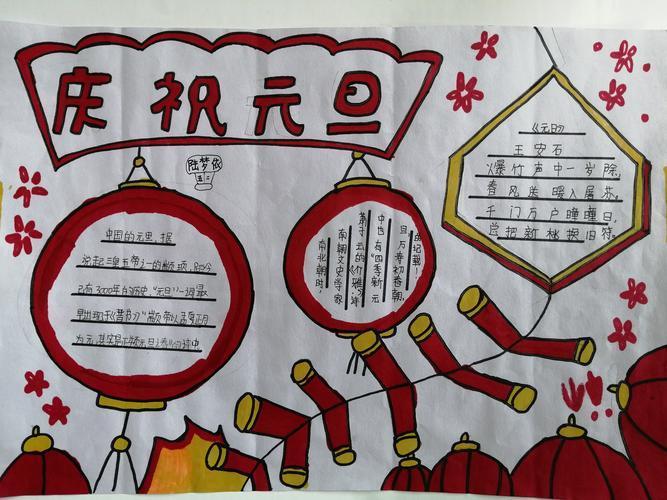 庆祝元旦
陆梦依
五二
中国的元旦,据
说起三皇五帝之一的颛顼,距今
已有3000年的历史.“元旦”一词最
早出现于《晋书》:“颛帝以孟夏正月
为元,其实正朔元旦之春”的诗中
南北朝时,
南朝文史学家
萧子云的《介雅》诗
中也有“四季新元
旦,万寿初春朝
记载!
《元日》
王安石
爆竹声中一岁除,
春风送暖入屠苏.
千门万户曈曈日,
总把新桃换旧符.